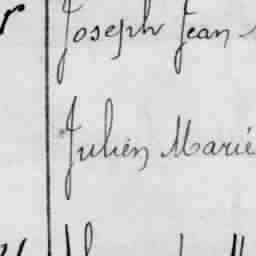 Joseph Jean
Julien Marie